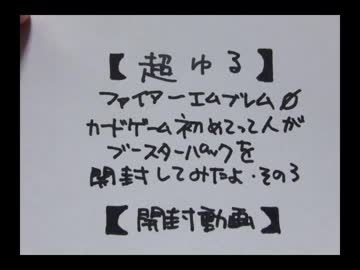 【超ゆる】
ファイアーエムブレム∅
カードゲーム初めてって人が
ブースターパックを
開封してみたよ・その3
【開封動画】